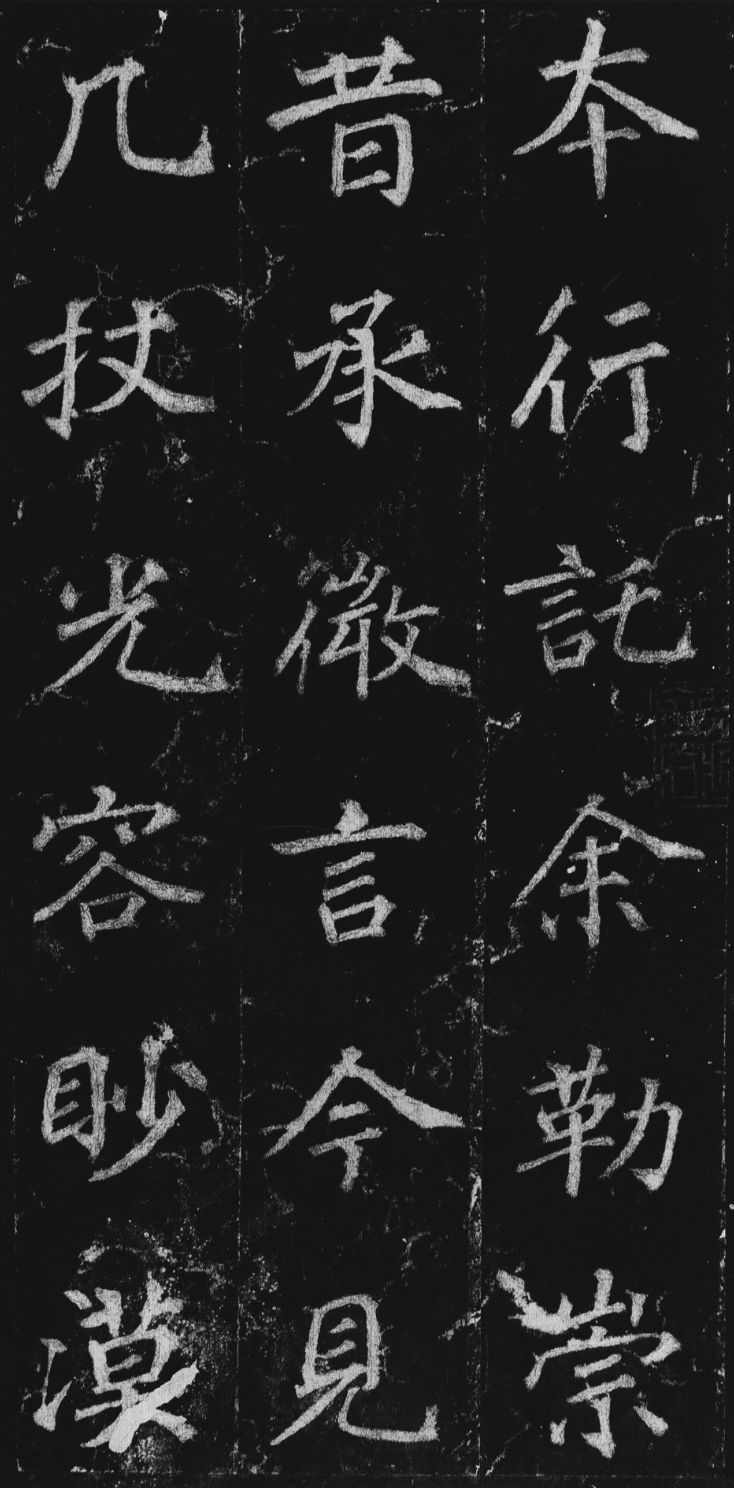 本行託余勒崇
昔承微言今見
几杖光容眇漠